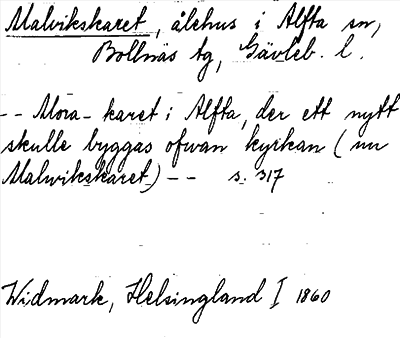 Malvikskaret, ålehus i Alfta sn,
Bollnäs tg, Gävleb. l.
-- Mora-karet i Alfta, der ett nytt
skulle byggas ofwan kyrkan (nu
Malwikskaret) -- s. 317
Widmark, Helsingland I 1860